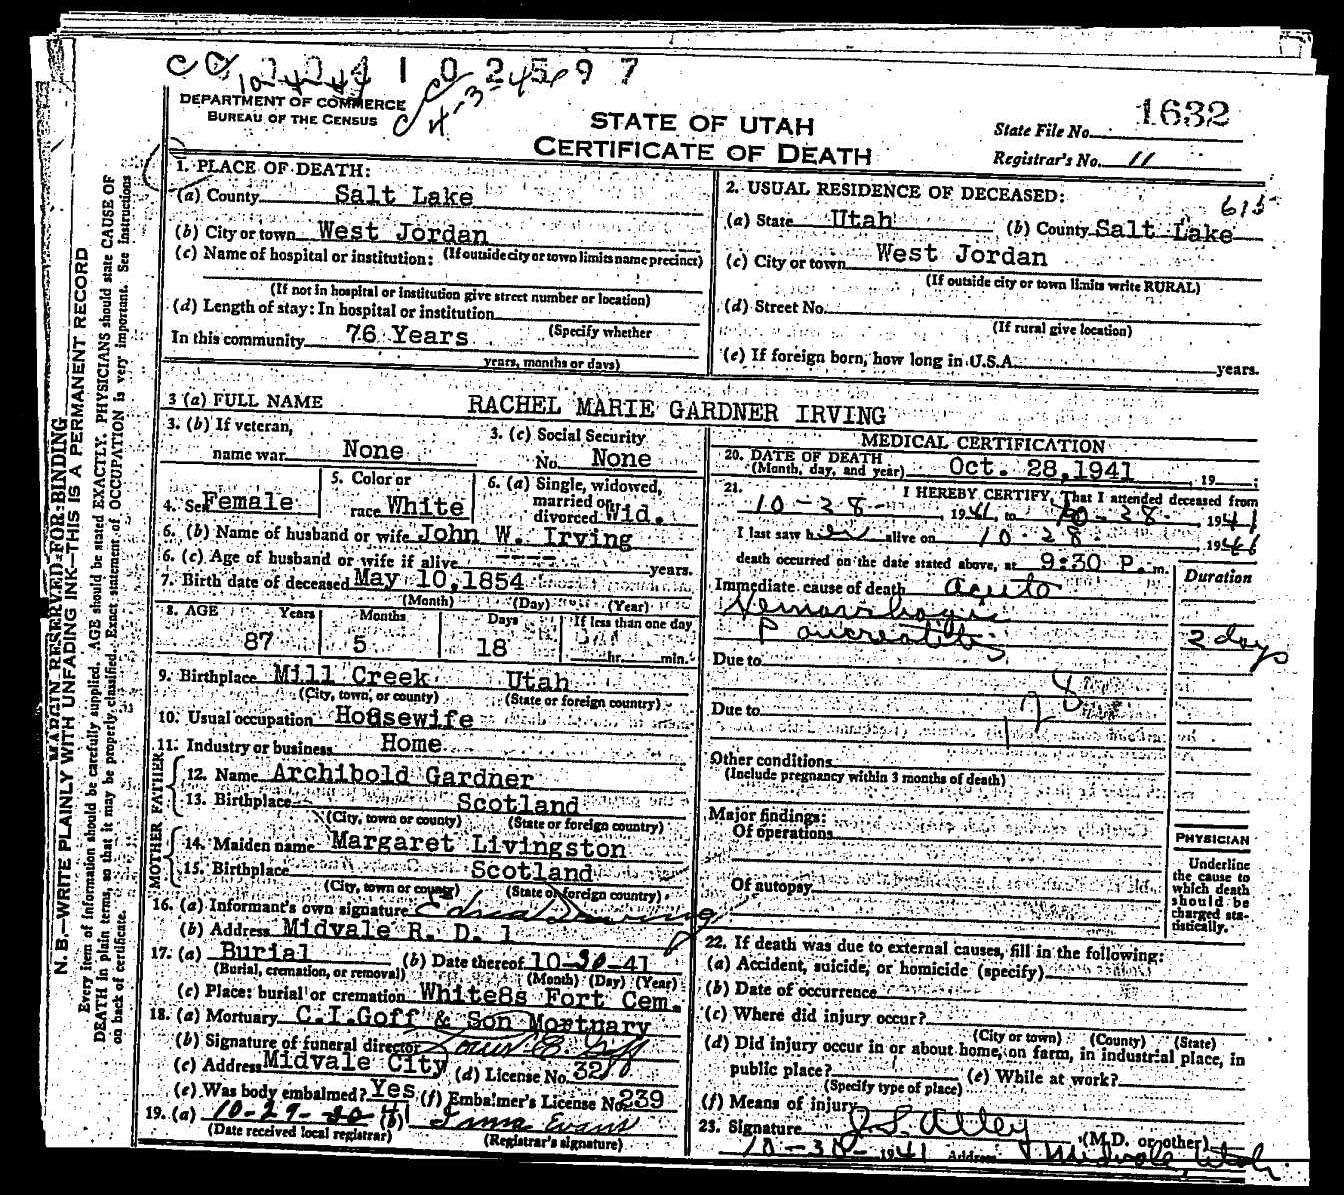 DEPARTMENT OF COMMERCE
BUREAU OF THE CENSUS
STATE OF UTAH
CERTIFICATE OF DEATH
State File No. 1632
Registrar's No. 11
1. PLACE OF DEATH:
(a) County Salt Lake
(b) City or town West Jordan
(c) Name of hospital or institution: (If outside city or town limits name precinct)
(If not in hospital or institution give street number or location)
(d) Length of stay: In hospital or institution
(Specify whether
In this community 76 Years
years, months or days)
2. USUAL RESIDENCE OF DECEASED:
615
(a) State Utah (b) County Salt Lake
(c) City or town West Jordan
(If outside city or town limits write RURAL)
(d) Street No.
(If rural give location)
(e) If foreign born, how long in U.S.A. years.
3 (a) FULL NAME RACHEL MARIE GARDNER IRVING
3. (b) If veteran,
name war None
3. (c) Social Security
No. None
4. Sex Female
5. Color or
race White
6. (a) Single, widowed,
married or
divorced Wid.
6. (b) Name of husband or wife John W. Irving
6. (c) Age of husband or wife if alive ---- years.
7. Birth date of deceased May 10,1854
(Month) (Day) (Year)
8. AGE Years Months Days If less than one day
87 5 18 hr. min.
9. Birthplace Mill Creek Utah
(City, town, or county) (State or foreign country)
10. Usual occupation Ho8sewife
11. Industry or business Home
FATHER
12. Name Archibold Gardner
13. Birthplace Scotland
(City, town or county) (State or foreign country)
MOTHER
14. Maiden name Margaret Livingston
15. Birthplace Scotland
(City, town or county) (State or foreign country)
16. (a) Informant's own signature Edna Irving
(b) Address Midvale R. D. 1
17. (a) Burial (b) Date thereof 10-30-41
(Burial, cremation, or removal) (Month) (Day) (Year)
(c) Place: burial or cremation White8s Fort Cem.
18. (a) Mortuary C.I.Goff & Son Mortuary
(b) Signature of funeral director
(c) Address Midvale City (d) License No.
(e) Was body embalmed? Yes (f) Embalmer's License No. 239
19. (a) 10-29- 41 (b) Irma Evans
(Date received local registrar) (Registrar's signature)
MEDICAL CERTIFICATION
20. DATE OF DEATH
(Month, day, and year) Oct. 28,1941 , 19 :
21. I HEREBY CERTIFY, That I attended deceased from
10-28- , 1941 to 10-28- , 1941
I last saw her alive on 10-28- , 19
death occurred on the date stated above, at 9:30 P. m.
Duration
Immediate cause of death acute
Hemorrhagic
Pancreatitis
2 days
Due to
128
Due to
Other conditions
(Include pregnancy within 3 months of death)
Major findings:
Of operations
Of autopsy
PHYSICIAN
Underline
the cause to
which death
should be
charged sta-
tistically.
22. If death was due to external causes, fill in the following:
(a) Accident, suicide, or homicide (specify)
(b) Date of occurrence
(c) Where did injury occur?
(City or town) (County) (State)
(d) Did injury occur in or about home, on farm, in industrial place, in
public place? (e) While at work?
(Specify type of place)
(f) Means of injury
23. Signature J. S. Alley (M.D. or other)
10-30-1941 Address Midvale, Utah
MARGIN RESERVED FOR BINDING
N. B.—WRITE PLAINLY WITH UNFADING INK—THIS IS A PERMANENT RECORD
Every item of information should be carefully supplied. AGE should be stated EXACTLY. PHYSICIANS should state CAUSE OF
DEATH in plain terms, so that it may be properly classified. Exact statement of OCCUPATION is very important. See instructions
on back of certificate.